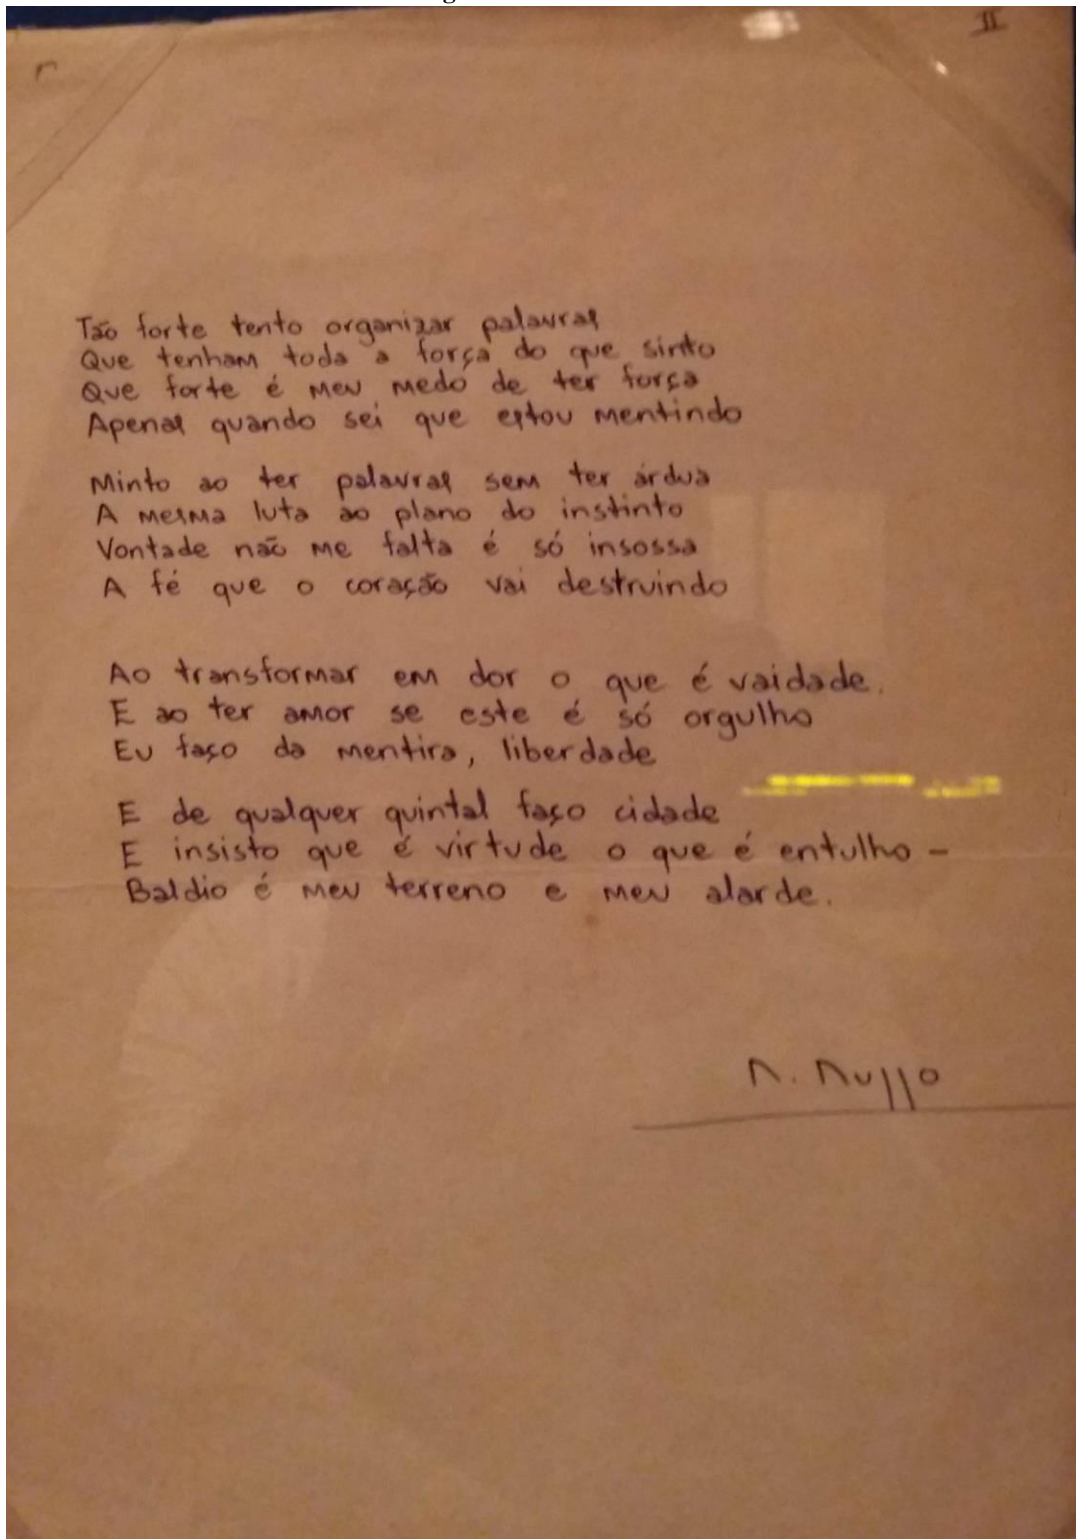 II
Tão forte tento organizar palavras
Que tenham toda a força do que sinto
Que forte é meu medo de ter força
Apenas quando sei que estou mentindo
Minto ao ter palavras sem ter árdua
A mesma luta ao plano do instinto
Vontade não me falta é só insossa
A fé que o coração vai destruindo
Ao transformar em dor o que é vaidade.
E ao ter amor se este é só orgulho
Eu faço da mentira, liberdade
E de qualquer quintal faço cidade
E insisto que é virtude o que é entulho -
Baldio é meu terreno e meu alarde.